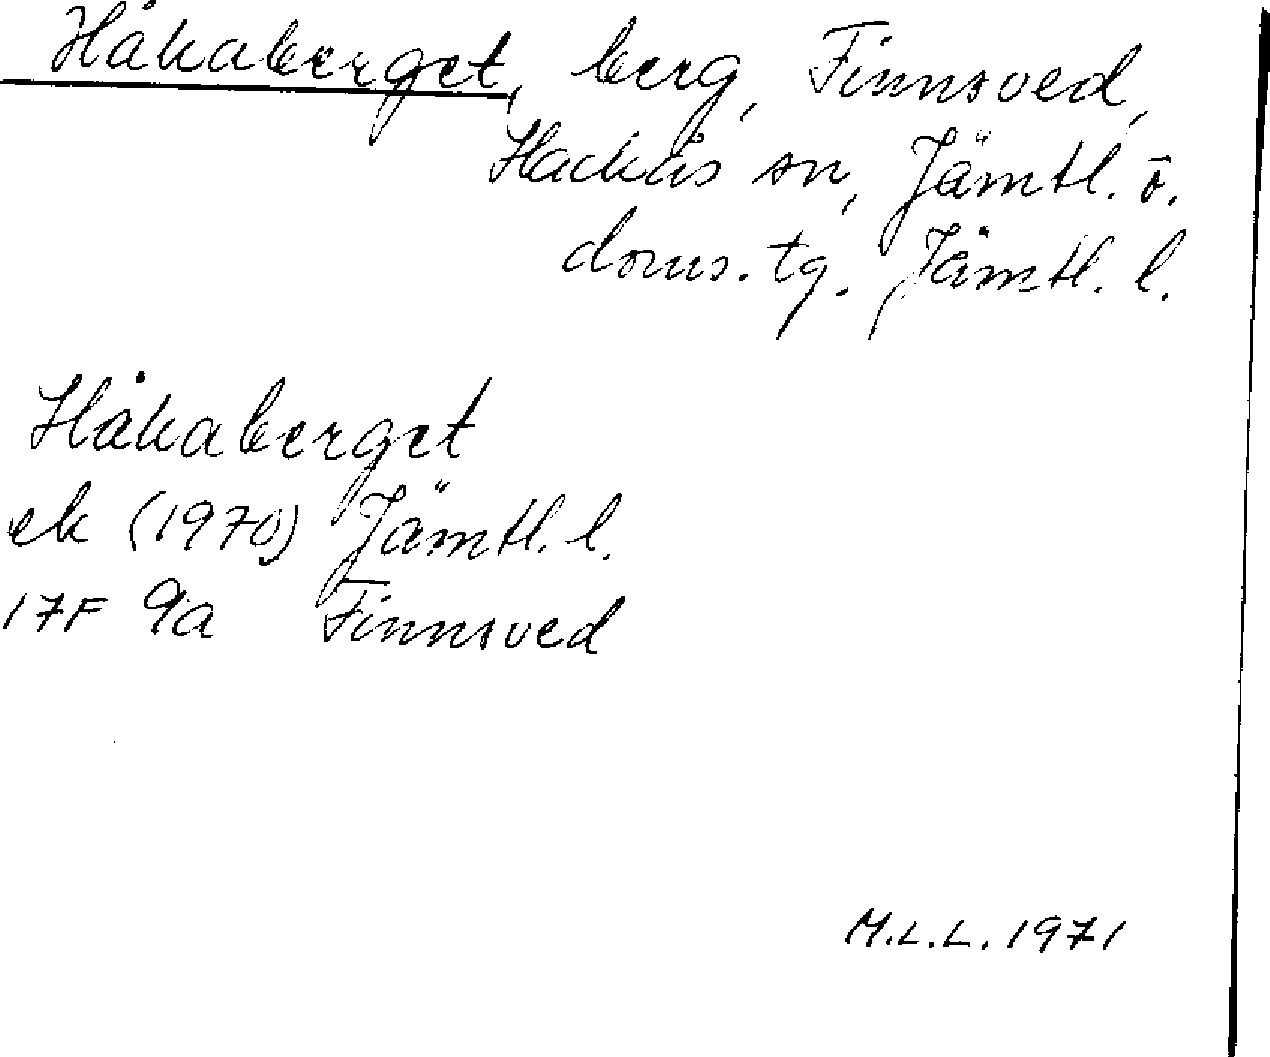 Håkaberget, berg, Finnsved,
Hackås sn, Jämtl. ö.
doms. tg. Jämtl. l.
Håkaberget
ek (1970) Jämtl. l.
17F 9a Finnsved
M.L.L. 1971